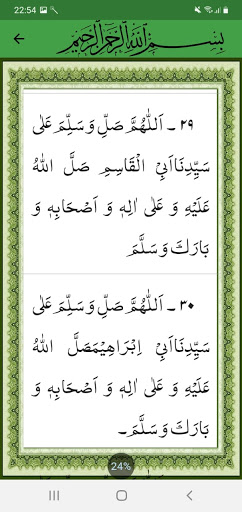 22:54
بِسْمِ اللهِ الرَّحْمٰنِ الرَّحِيْمِ
٢٩ ـ اَللّٰهُمَّ صَلِّ وَسَلِّمْ عَلٰى
سَيِّدِنَااَبِىْ الْقَاسِمِ صَلَّ اللهُ
عَلَيْهِ وَ عَلٰى اٰلِهٖ وَ اَصْحَابِهٖ وَ
بَارَكَ وَسَلَّمَ
٣٠ ـ اَللّٰهُمَّ صَلِّ وَسَلِّمْ عَلٰى
سَيِّدِنَااَبِىْ اِبْرَاهِيْمَصَلَّ اللهُ
عَلَيْهِ وَ عَلٰى اٰلِهٖ وَ اَصْحَابِهٖ وَ
بَارَكَ وَسَلَّمَ۔
24%